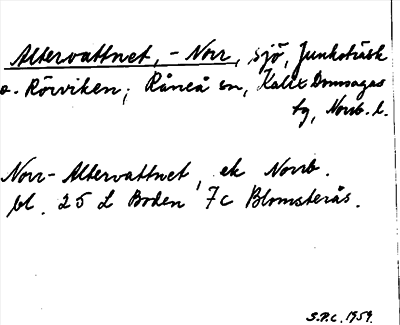 Altervattnet, - Norr, sjö, Junkoträsk
o. Rörviken, Råneå sn, Kalix Domsagas
tg, Norrb. l.
Norr-Altervattnet, ek Norrb.
bl. 25 L Boden 7c Blomsterås.
S.P.C. 1959.